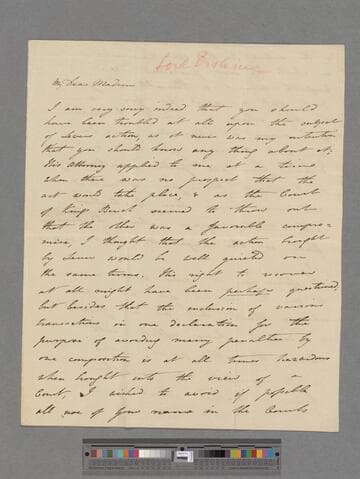 Lord Erskine
My Dear Madam
I am very sorry indeed that you should
have been troubled at all upon the subject
of action, as it never was my intention
that you should know any thing about it:
His Attorney applied to me at a time
when there was no prospect that the
act would take place, & as the Court
of King's Bench seemed to throw out
that the other was a favorable compro=
mise, I thought that the action brought
by would be well quieted on
the same terms. His right to recover
at all might have been perhaps questioned
but besides that the inclusion of various
transactions in one declaration for the
purpose of avoiding many penalties by
one composition is at all times hazardous
when brought into the view of a
Court, I wished to avoid if possible
all use of your name in the Courts